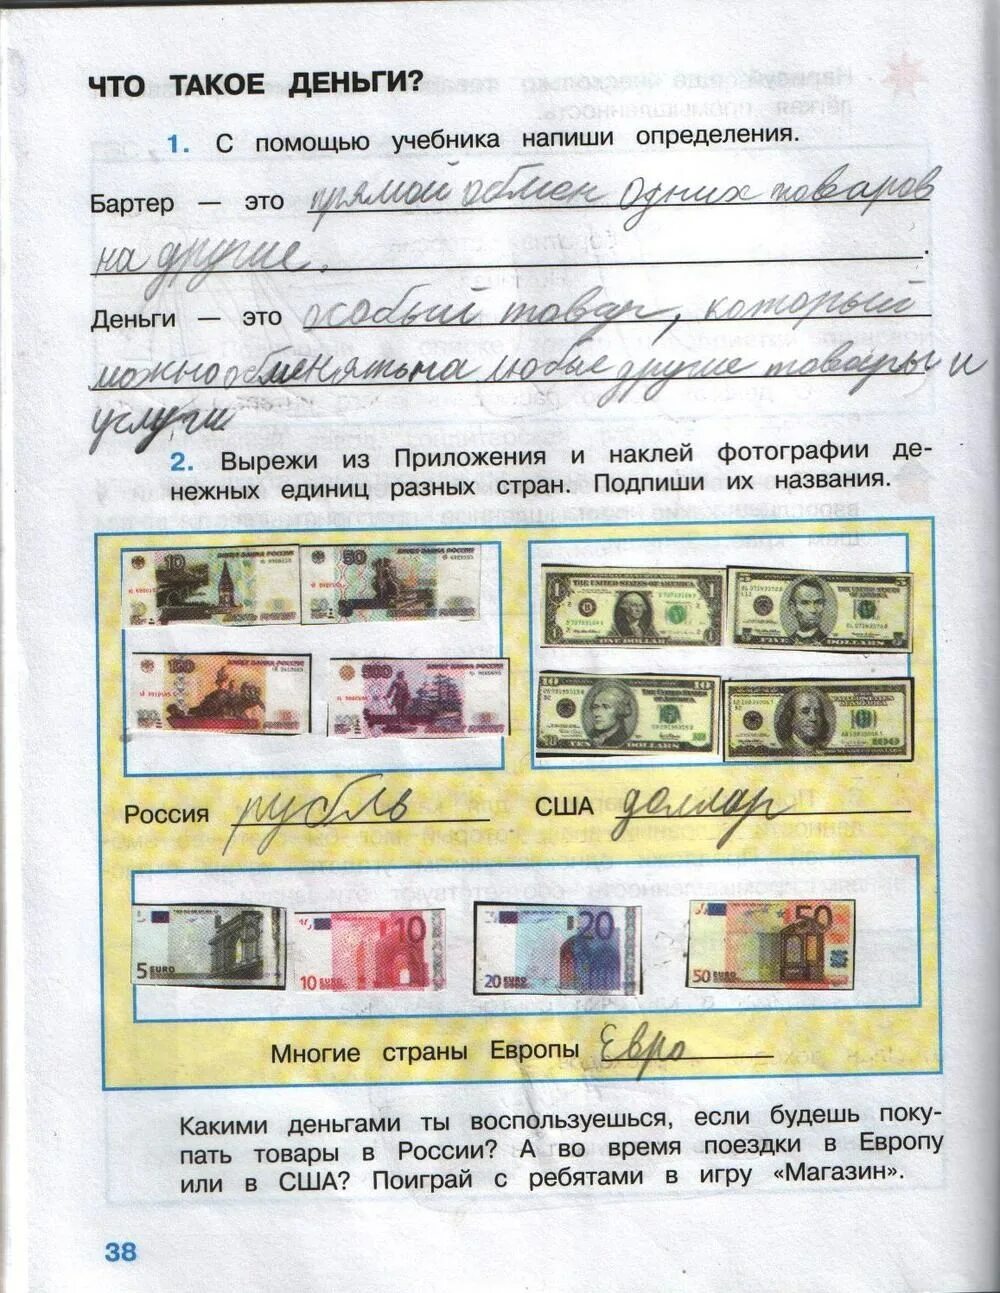 ЧТО ТАКОЕ ДЕНЬГИ?
1. С помощью учебника напиши определения.
Бартер — это прямой обмен одних товаров
на другие.
Деньги — это особый товар, который
можно обменять на любые другие товары и
услуги
2. Вырежи из Приложения и наклей фотографии де-
нежных единиц разных стран. Подпиши их названия.
10 50
THE UNITED STATES OF AMERICA
ONE DOLLAR
FIVE DOLLARS
100 500
10 TEN DOLLARS
100
Россия рубль США доллар
5 EURO 10 10 EURO 20 20 EURO 50 50 EURO
Многие страны Европы Евро
Какими деньгами ты воспользуешься, если будешь поку-
пать товары в России? А во время поездки в Европу
или в США? Поиграй с ребятами в игру «Магазин».
38